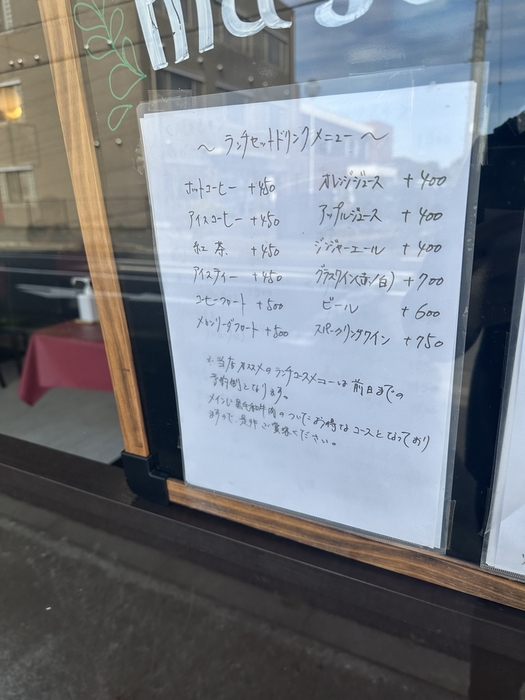 ～ ランチセットドリンクメニュー ～
ホットコーヒー +450
アイスコーヒー +450
紅茶 +450
アイスティー +450
コーヒーフロート +500
メロンソーダフロート +500
オレンジジュース +400
アップルジュース +400
ジンジャーエール +400
グラスワイン(赤/白) +700
ビール +600
スパークリングワイン +750
※当店オススメのランチコースメニューは前日までの
予約制となります。
メインに黒毛和牛肉のついたお得なコースとなっており
ますので、是非ご賞味ください。